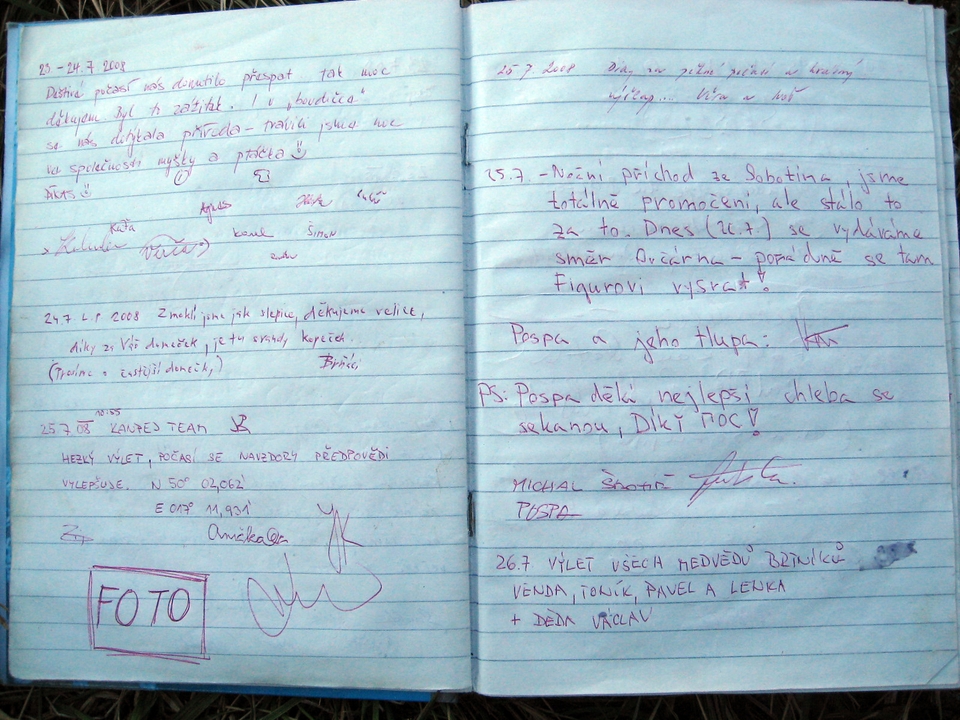 23-24.7 2008
Deštivé počasí nás donutilo přespat tak moc
děkujem Byl to zážitek. I v „boudičce"
se nás dotýkala příroda - trávili jsme noc
ve společnosti myšky a ptáčka
Kača
Verča
Šimon
24.7. L.P 2008 Zmokli jsme jak slepice, děkujeme velice,
díky za Váš domeček, je tu srandy kopeček.
(Prosíme o častější domečky)
Brňáci
25.7 08 10:55 KANPES TEAM
HEZKÝ VÝLET, POČASÍ SE NAVZDORY PŘEDPOVĚDI
VYLEPŠUJE. N 50° 02,062'
E 017° 11,931'
Anička
FOTO
25.7. 2008 Díky za pěkné počasí a krásný
výšlap...
25.7. - Noční příchod ze Sobotína, jsme
totálně promočení, ale stálo to
za to. Dnes (26.7.) se vydáváme
směr Ovčárna - pořádně se tam
Figurovi vysrat!
Pospa a jeho tlupa:
PS: Pospa dělá nejlepší chleba se
sekanou, DÍKY MOC!
MICHAL
POSPA
26.7 VÝLET VŠECH MEDVĚDŮ BRTNÍKŮ
VENDA, TONÍK, PAVEL A LENKA
+ DĚDA VÁCLAV